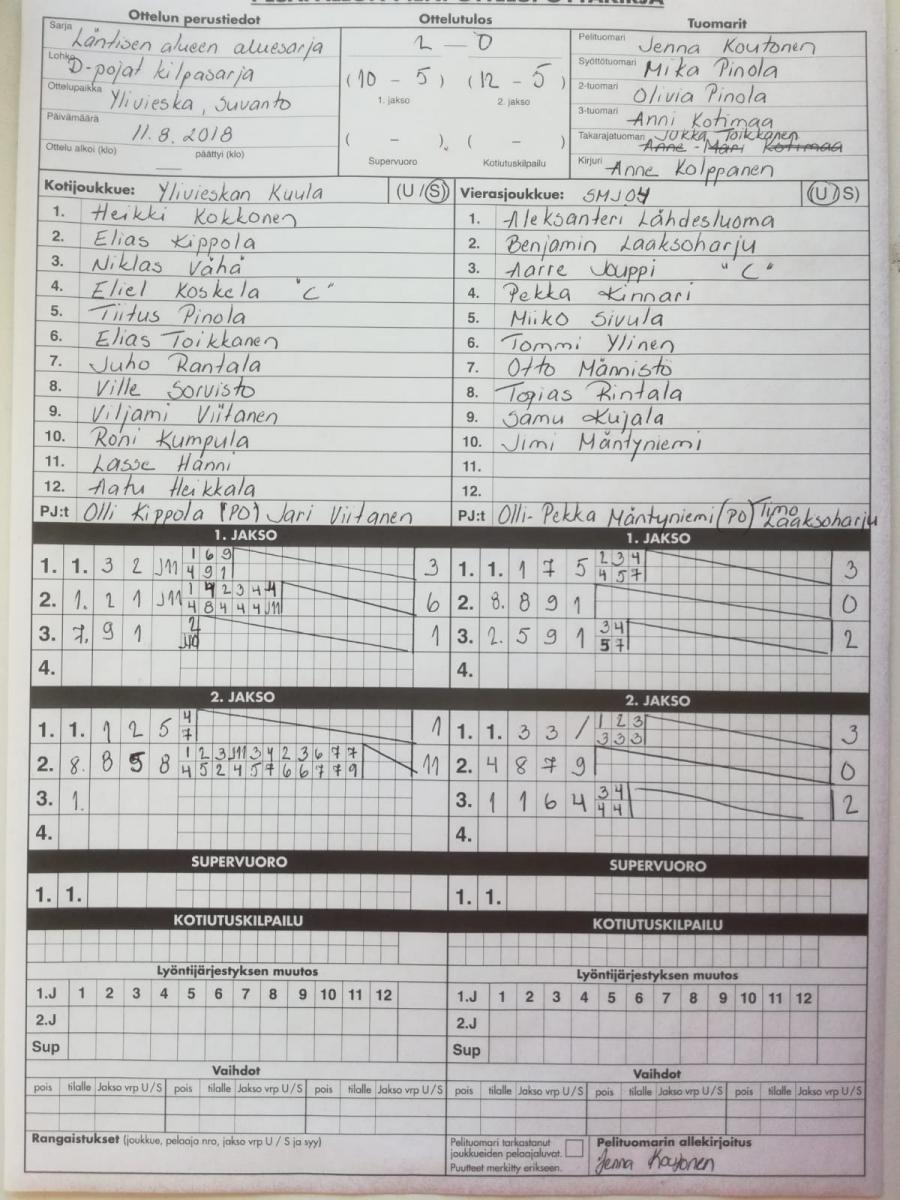 Ottelun perustiedot
Ottelutulos
Tuomarit
Sarja Läntisen alueen aluesarja
Lohko D-pojat kilpasarja
Ottelupaikka Ylivieska, Suvanto
Päivämäärä 11.8.2018
Ottelu alkoi (klo) päättyi (klo)
2 - 0
(10 - 5) (12 - 5)
1. jakso 2. jakso
( - ), ( - )
Supervuoro Kotiutuskilpailu
Pelituomari Jenna Koutonen
Syöttötuomari Mika Pinola
2-tuomari Olivia Pinola
3-tuomari Anni Kotimaa
Takarajatuomari Jukka Toikkanen
Anne-Mari Kotimaa
Kirjuri Anne Kolppanen
Kotijoukkue: Ylivieskan Kuula (U/S)
1. Heikki Kokkonen
2. Elias Kippola
3. Niklas Vähä
4. Eliel Koskela "C"
5. Tiitus Pinola
6. Elias Toikkanen
7. Juho Rantala
8. Ville Sorvisto
9. Viljami Viitanen
10. Roni Kumpula
11. Lasse Hänni
12. Aatu Heikkala
PJ:t Olli Kippola (PO) Jari Viitanen
Vierasjoukkue: SMJ04 (U/S)
1. Aleksanteri Lähdesluoma
2. Benjamin Laaksoharju
3. Aarre Jouppi "C"
4. Pekka Kinnari
5. Miiko Sivula
6. Tommi Ylinen
7. Otto Männistö
8. Topias Rintala
9. Samu Kujala
10. Jimi Mäntyniemi
11.
12.
PJ:t Olli-Pekka Mäntyniemi (PO) Timo Laaksoharju
1. JAKSO
1. 1. 3 2 J11 1 6 9 3
4 9 1
2. 1. 2 1 J11 1 4 2 3 4 4 6
4 8 4 4 4 J11
3. 7. 9 1 2 1
J10
4.
1. JAKSO
1. 1. 1 7 5 2 3 4 3
4 5 7
2. 8. 8 9 1 0
3. 2. 5 9 1 3 4 2
5 7
4.
2. JAKSO
1. 1. 1 2 5 4 1
7
2. 8. 8 5 8 1 2 3 J11 3 4 2 3 6 7 7 11
4 5 2 4 5 7 6 6 7 7 9
3. 1.
4.
2. JAKSO
1. 1. 3 3 / 1 2 3 3
3 3 3
2. 4 8 7 9 0
3. 1 1 6 4 3 4 2
4 4
4.
SUPERVUORO
1. 1.
SUPERVUORO
1. 1.
KOTIUTUSKILPAILU
KOTIUTUSKILPAILU
Lyöntijärjestyksen muutos
1.J 1 2 3 4 5 6 7 8 9 10 11 12
2.J
Sup
Lyöntijärjestyksen muutos
1.J 1 2 3 4 5 6 7 8 9 10 11 12
2.J
Sup
Vaihdot
pois tilalle Jakso vrp U/S pois tilalle Jakso vrp U/S pois tilalle Jakso vrp U/S
Vaihdot
pois tilalle Jakso vrp U/S pois tilalle Jakso vrp U/S pois tilalle Jakso vrp U/S
Rangaistukset (joukkue, pelaaja nro, jakso vrp U / S ja syy)
Pelituomari tarkastanut
joukkueiden pelaajaluvat.
Puutteet merkitty erikseen.
Pelituomarin allekirjoitus
Jenna Koutonen